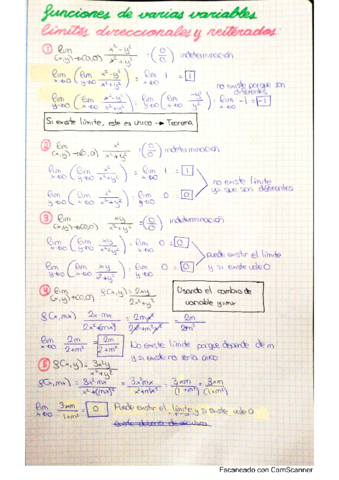 funciones de varias variables
límites direccionales y reiterados:
① lim (x,y)→(0,0) x²-y² / x²+y² · (0/0) indeterminación
lim x→0 (lim y→0 x²-y² / x²+y²) = lim x→0 1 = 1
no existe porque son diferentes
lim y→0 (lim x→0 x²-y² / x²+y²) = lim y→0 (-y² / y²) = lim y→0 -1 = -1
Si existe límite, este es único → Teorema
② lim (x,y)→(0,0) x² / x²+y² · (0/0) indeterminación
lim x→0 (lim y→0 x² / x²+y²) = lim x→0 1 = 1
no existe límite
ya que son diferentes
lim y→0 (lim x→0 x² / x²+y²) = lim y→0 0 = 0
③ lim (x,y)→(0,0) xy / x²+y² = (0/0) indeterminación
lim x→0 (lim y→0 xy / x²+y²) = lim x→0 0 = 0
puede existir el límite
y si existe vale 0
lim y→0 (lim x→0 xy / x²+y²) = lim y→0 0 = 0
④ lim (x,y)→(0,0) f(x,y) = 2xy / 2x²+y²
Usando el cambio de
variable y=mx
f(x,mx) 2x·mx / 2x²+(mx)² = 2mx² / 2x²+m²x² = 2m / 2+m²
lim x→0 2m / 2+m² = 2m / 2+m² No existe límite porque depende de m
y si existe no sería único
⑤ f(x,y) = 3x²y / x²+y²
f(x,mx) = 3x²mx / x²+(mx)² = 3x²mx / x²+m²x² = 3xm / (1+m²) = 3xm / (1+m²)
lim x→0 3xm / 1+m² = 0 Puede existir el límite y si existe vale 0
Escaneado con CamScanner